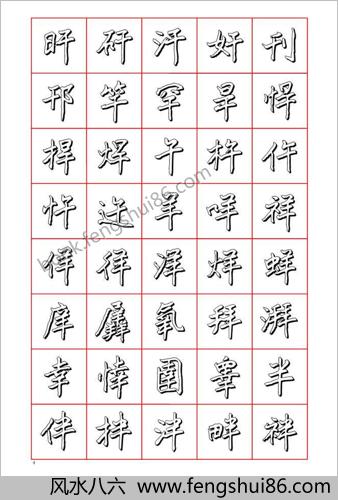 旰 矸 汗 奸 刊
邗 竿 罕 旱 悍
捍 焊 午 杵 仵
忤 迕 羊 咩 祥
佯 徉 洋 烊 蛘
庠 羼 氧 拜 湃
幸 悻 圉 睾 半
伴 拌 泮 畔 袢
book.fengshui86.com
风水八六 www.fengshui86.com